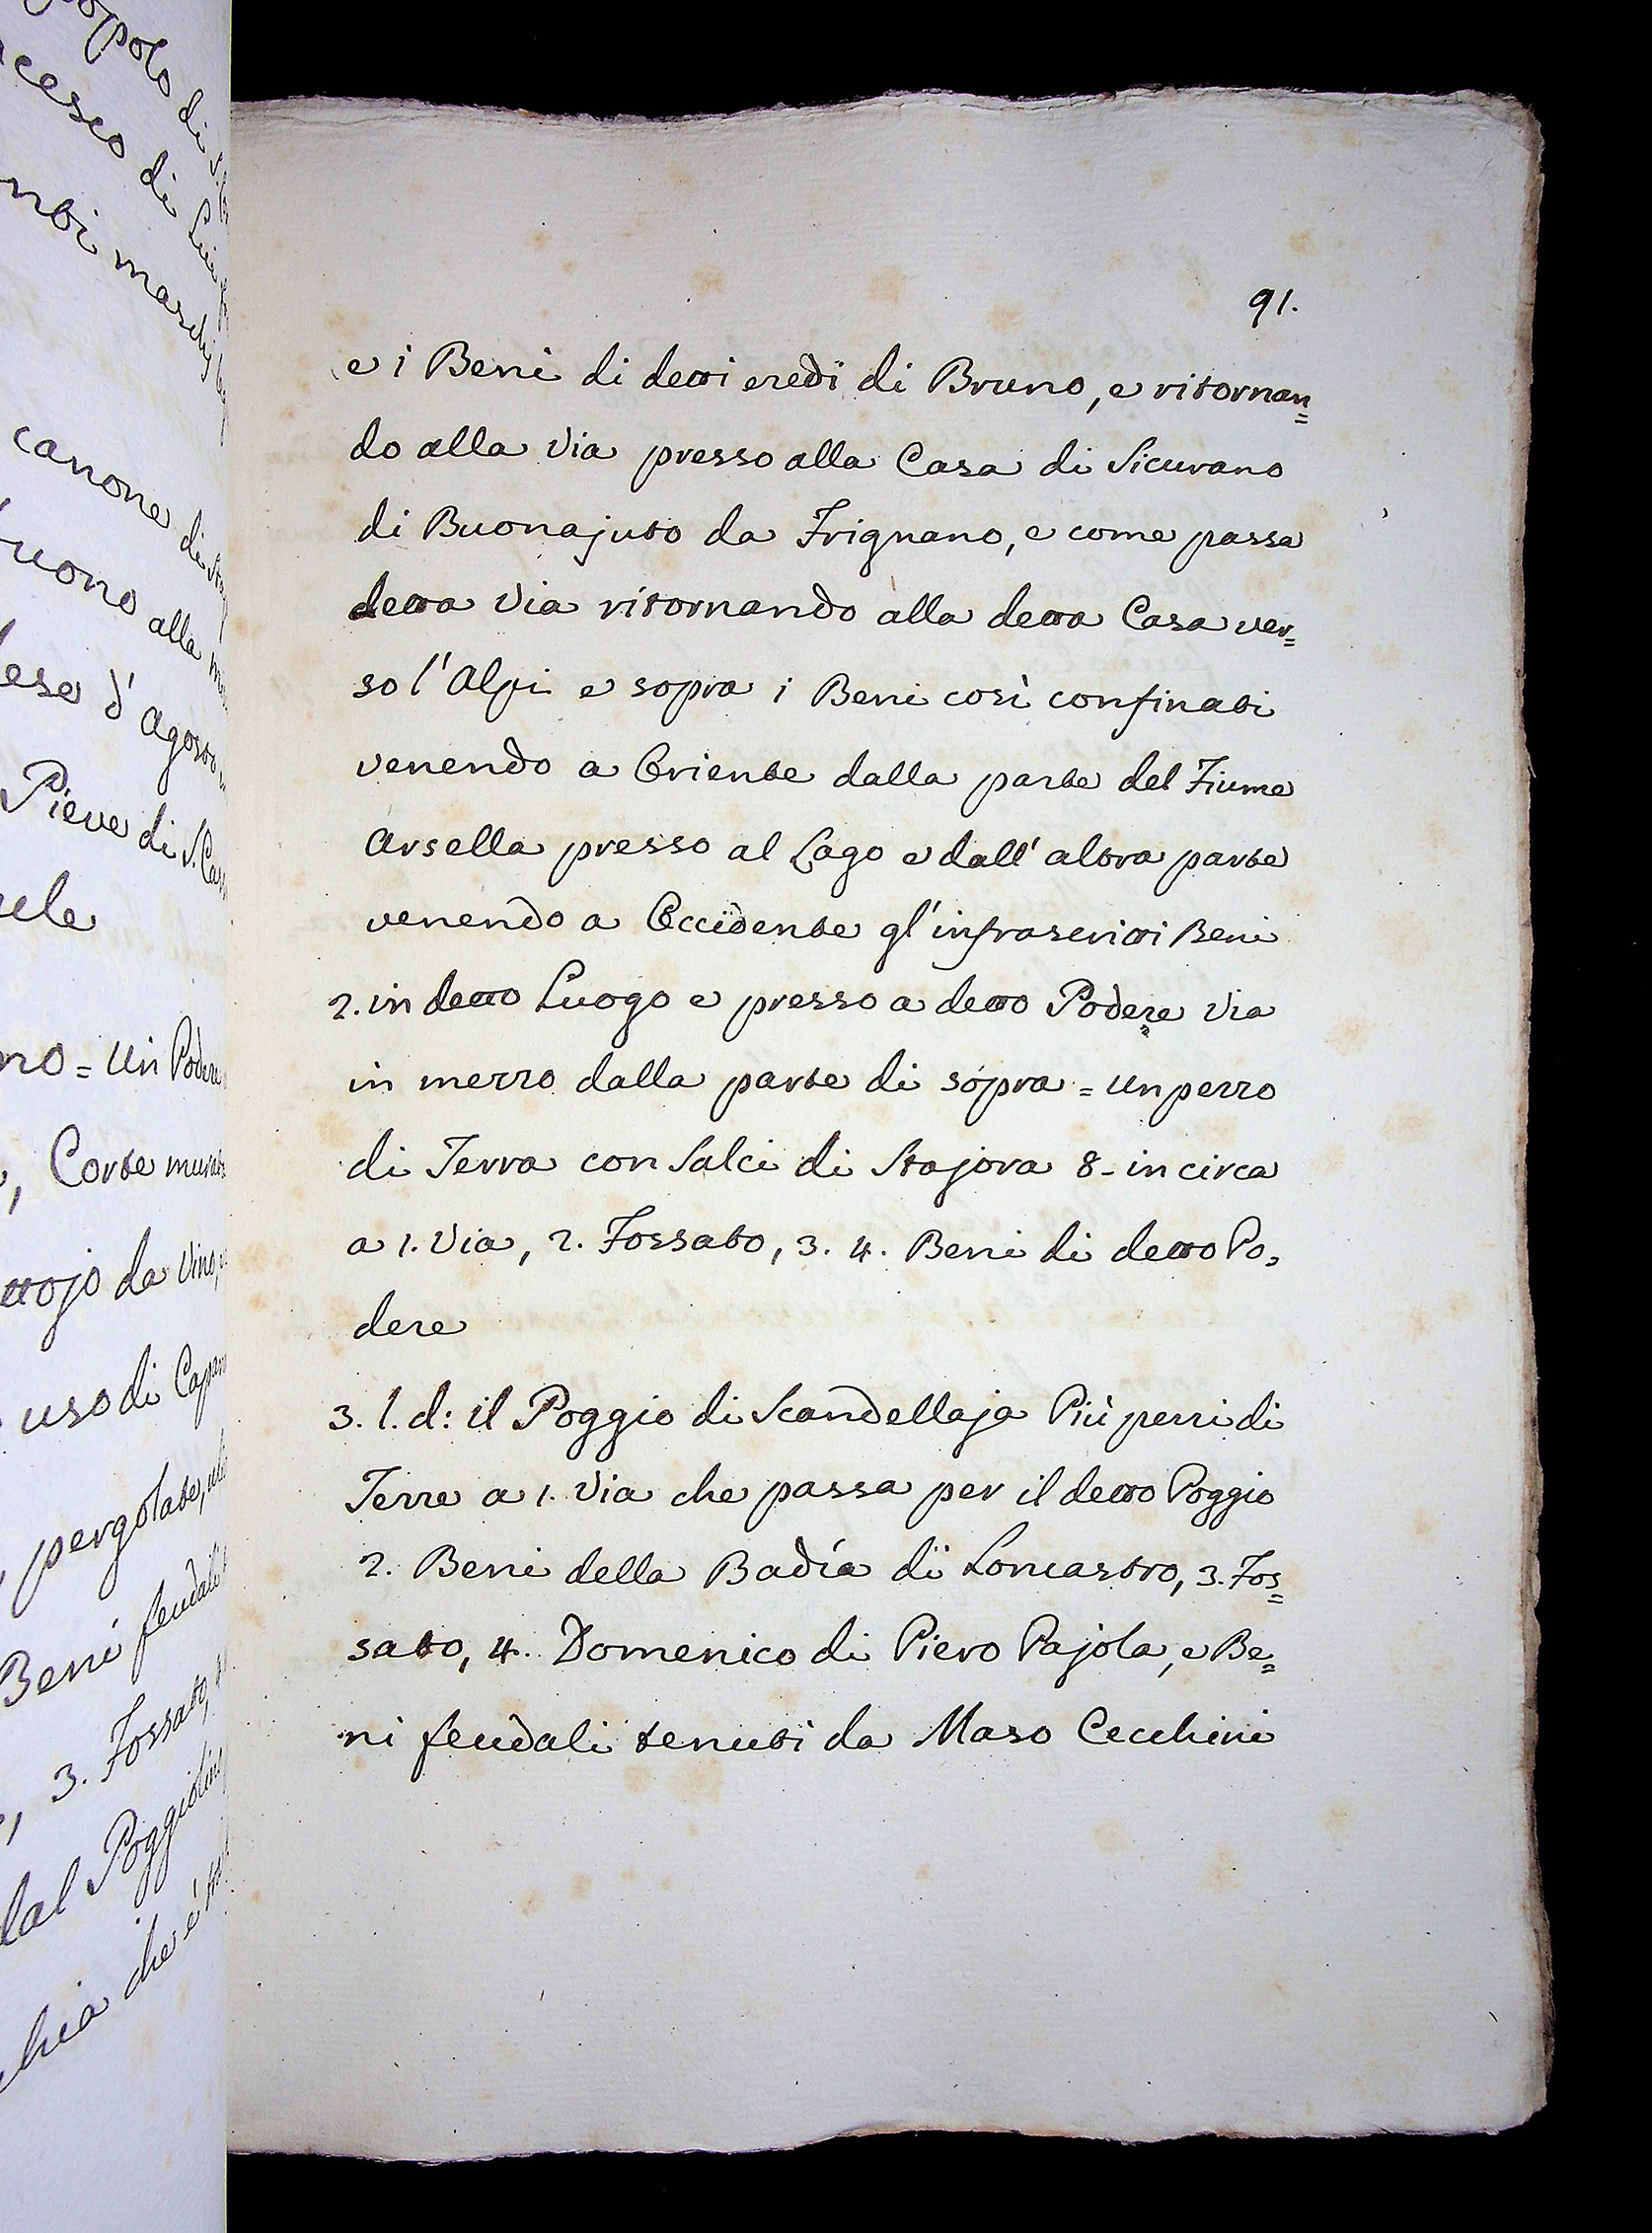 91.
e i Beni di detti eredi di Bruno, e ritornan=
do alla Via presso alla Casa di Sicurano
di Buonajuto da Frignano, e come passa
detta Via ritornando alla detta Casa ver=
so l'Alpi e sopra i Beni così confinati
venendo a Oriente dalla parte del Fiume
Arsella presso al Lago e dall'altra parte
venendo a Occidente gl'infrascritti Beni
2. in detto Luogo e presso a detto Podere Via
in mezzo dalla parte di sopra = un pezzo
di Terra con Salci di Stajora 8 - in circa
a 1. Via, 2. Fossato, 3. 4. Beni di detto Po=
dere
3. l. d: il Poggio di Scandellaja Più pezzi di
Terre a 1. Via che passa per il detto Poggio
2. Beni della Badía di Loncastro, 3. Fos=
sato, 4. Domenico di Piero Pajola, e Be=
ni feudali tenuti da Maso Cecchini
canone di
alla
d'Agosto
Pieve di S.
no = Un Podere
, Corte
da Vino,
uso di
pergolate,
Beni feudali
, 3. Fossato,
dal
che è